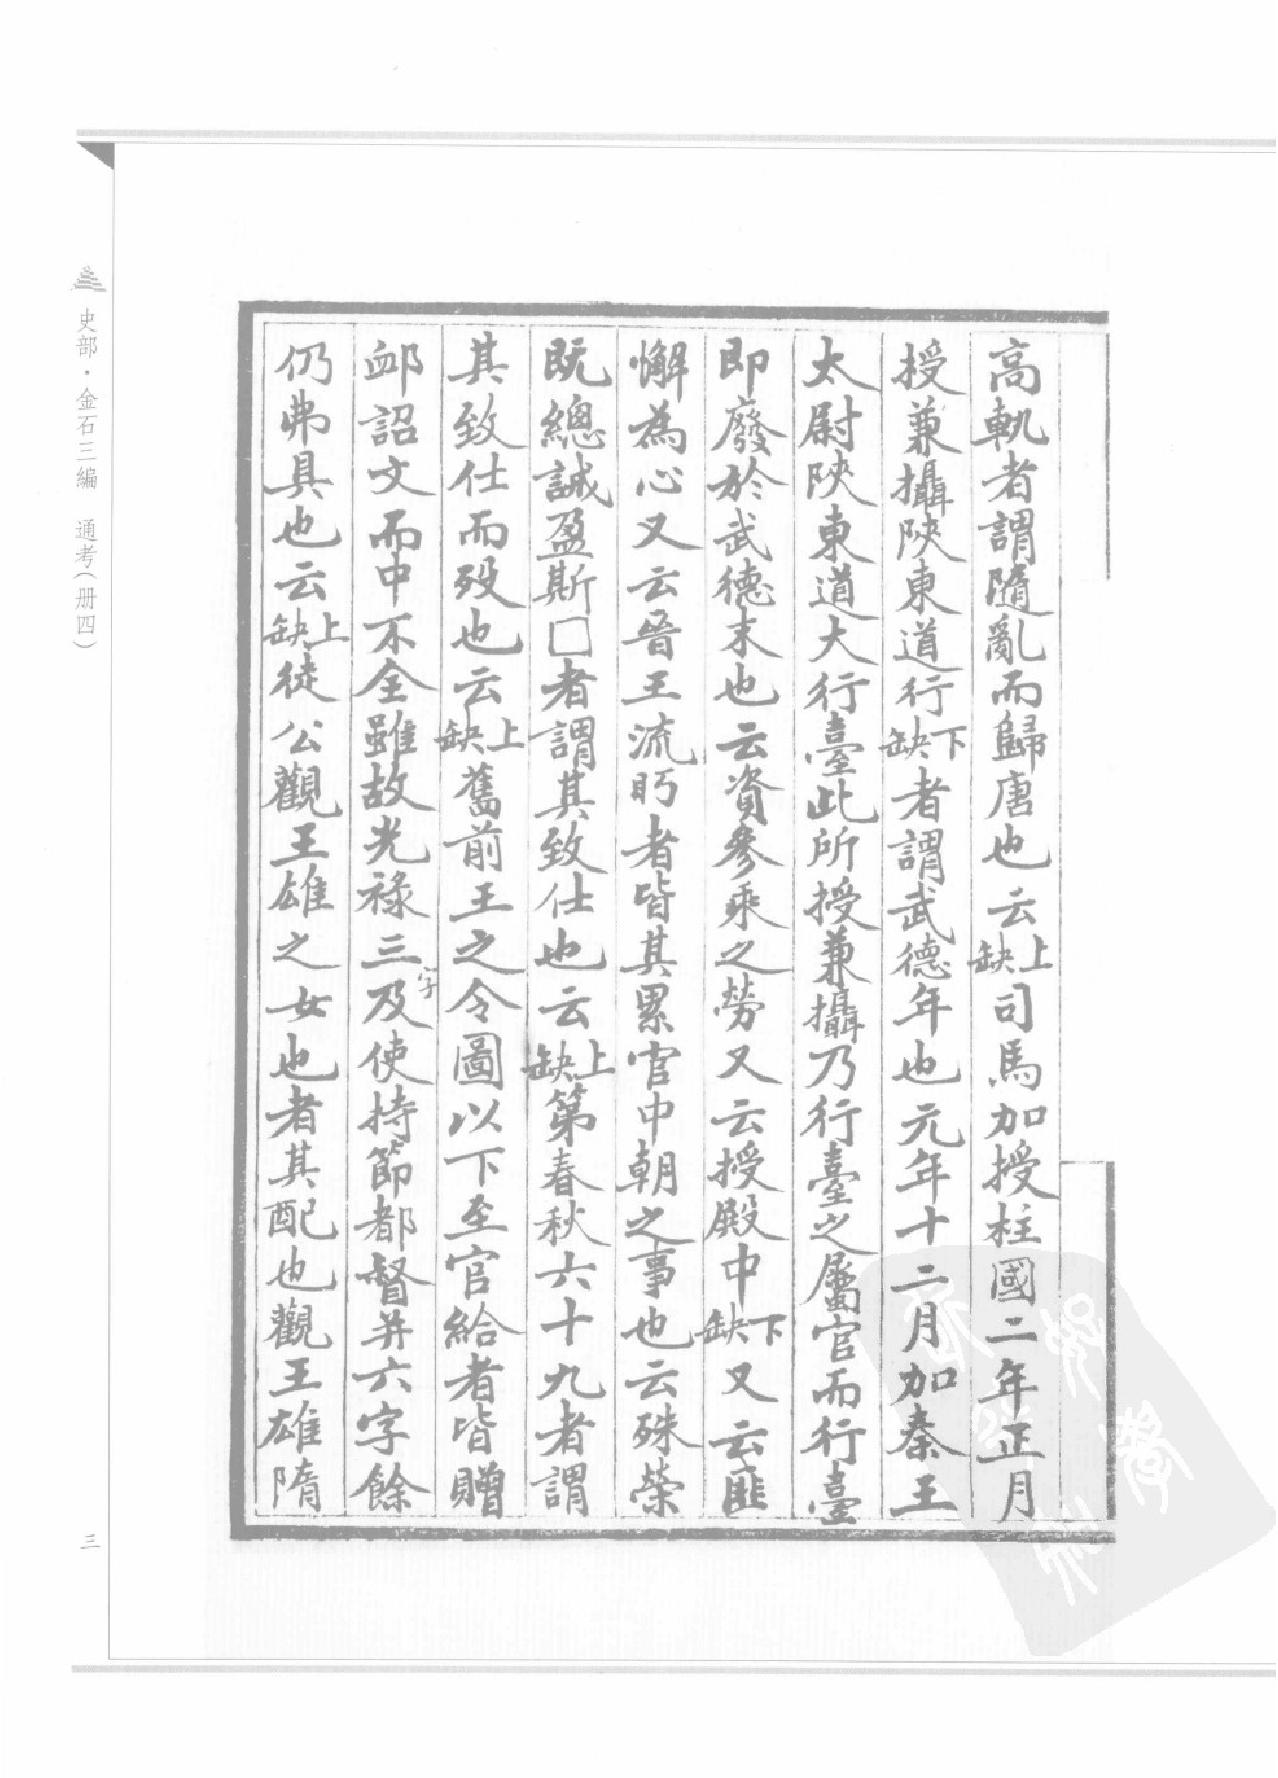 高軌者謂隨亂而歸唐也云上缺司馬加授柱國二年正月
授兼攝陝東道行下缺者謂武德年也元年十二月加秦王
太尉陝東道大行臺此所授兼攝乃行臺之屬官而行臺
即廢於武德末也云資參乘之勞又云授殿中下缺又云匪
懈為心又云晉王流眄者皆其累官中朝之事也云殊榮
既總誠盈斯□者謂其致仕也云上缺第春秋六十九者謂
其致仕而歿也云上缺舊前王之令圖以下至官給者皆贈
卹詔文而中不全雖故光祿三字及使持節都督并六字餘
仍弗具也云上缺徒公觀王雄之女也者其配也觀王雄隋
史部·金石三編 通考(册四)
三